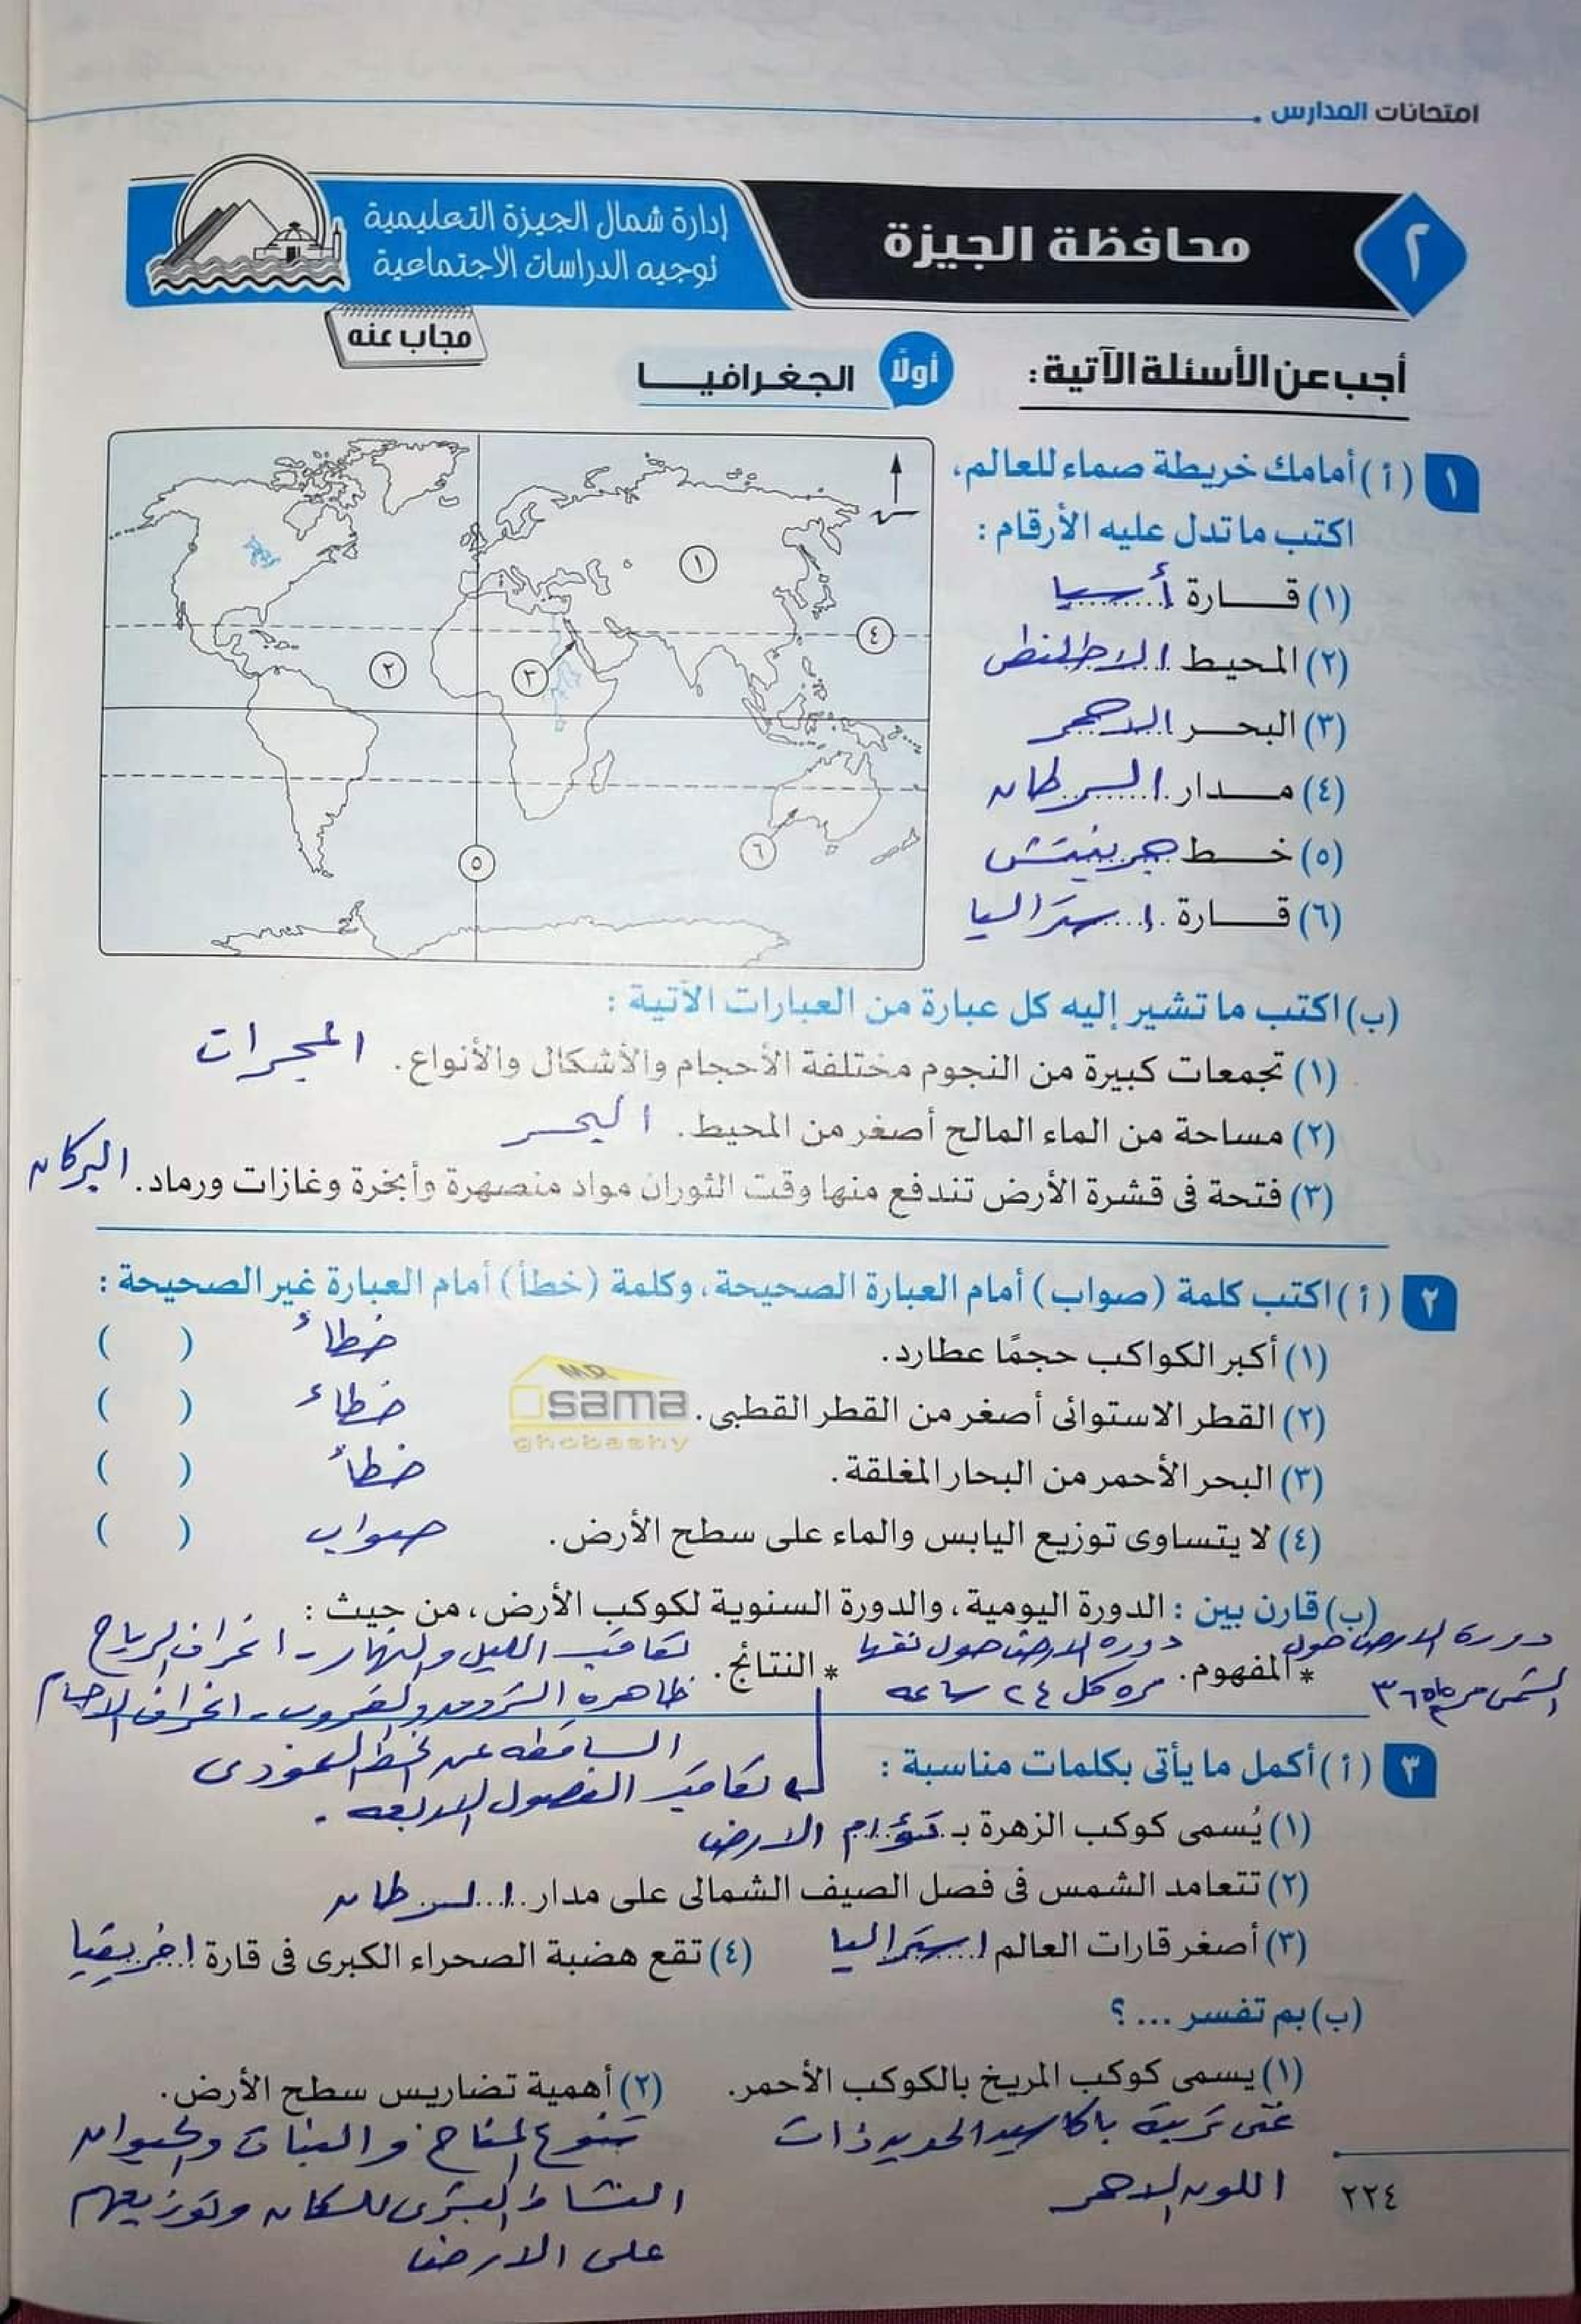 امتحانات المدارس
٢
محافظة الجيزة
إدارة شمال الجيزة التعليمية
توجيه الدراسات الاجتماعية
مجاب عنه
أجب عن الأسئلة الآتية :
أولًا الجغرافيـــا
١ (أ) أمامك خريطة صماء للعالم،
اكتب ما تدل عليه الأرقام :
(١) قـــارة أسيا
(٢) المحيط الاطلنطى
(٣) البحـــر الاحمر
(٤) مـــدار السرطان
(٥) خـــط جرينتش
(٦) قـــارة استراليا
١
٢
٣
٤
٥
٦
(ب) اكتب ما تشير إليه كل عبارة من العبارات الآتية :
(١) تجمعات كبيرة من النجوم مختلفة الأحجام والأشكال والأنواع. المجرات
(٢) مساحة من الماء المالح أصغر من المحيط. البحر
(٣) فتحة فى قشرة الأرض تندفع منها وقت الثوران مواد منصهرة وأبخرة وغازات ورماد. البركان
٢ (أ) اكتب كلمة (صواب) أمام العبارة الصحيحة، وكلمة (خطأ) أمام العبارة غير الصحيحة :
(١) أكبر الكواكب حجمًا عطارد. خطاء ( )
(٢) القطر الاستوائى أصغر من القطر القطبى. خطاء ( )
(٣) البحر الأحمر من البحار المغلقة. خطأ ( )
(٤) لا يتساوى توزيع اليابس والماء على سطح الأرض. صواب ( )
MR
Osama
ghobashy
(ب) قارن بين : الدورة اليومية، والدورة السنوية لكوكب الأرض، من حيث :
* المفهوم. * النتائج.
دورة الارض حول
الشمس كل
دورة الارض حول نفسها
مره كل ٢٤ ساعه
تعاقب الليل والنهار - انحراف الرياح
ظاهرة الشروق والغروب - انحراف الاجسام
الساقطه عن الخط العمودى
تعاقب الفصول الاربعه .
٣ (أ) أكمل ما يأتى بكلمات مناسبة :
(١) يُسمى كوكب الزهرة بـ توًام الارض
(٢) تتعامد الشمس فى فصل الصيف الشمالى على مدار السرطان
(٣) أصغر قارات العالم استراليا (٤) تقع هضبة الصحراء الكبرى فى قارة افريقيا
(ب) بم تفسر ... ؟
(١) يسمى كوكب المريخ بالكوكب الأحمر. (٢) أهمية تضاريس سطح الأرض.
غنى تربته باكاسيد الحديد ذات
اللون الاحمر
تنوع المناخ والنبات والحيوان
النشاط البشرى للسكان وتوزيعهم
على الارض
٢٢٤